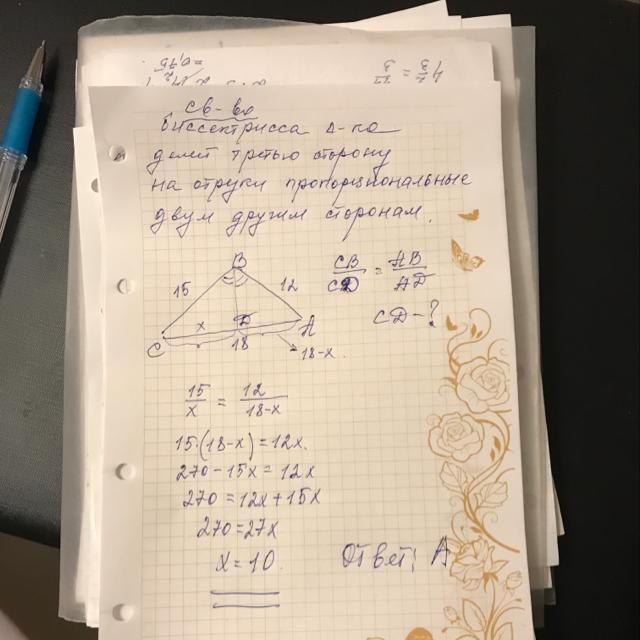 = 0,75
4/3 = 22/3
св-во
биссектрисса Δ-ка
делит третью сторону
на отрузки пропорциональные
двум другим сторонам.
B
15
12
x
D
A
C
18
18-x.
CB/CD = AB/AD
CD-?
15/x = 12/18-x
15(18-x)=12x.
270-15x=12x
270=12x+15x
270=27x
x=10.
Ответ: A